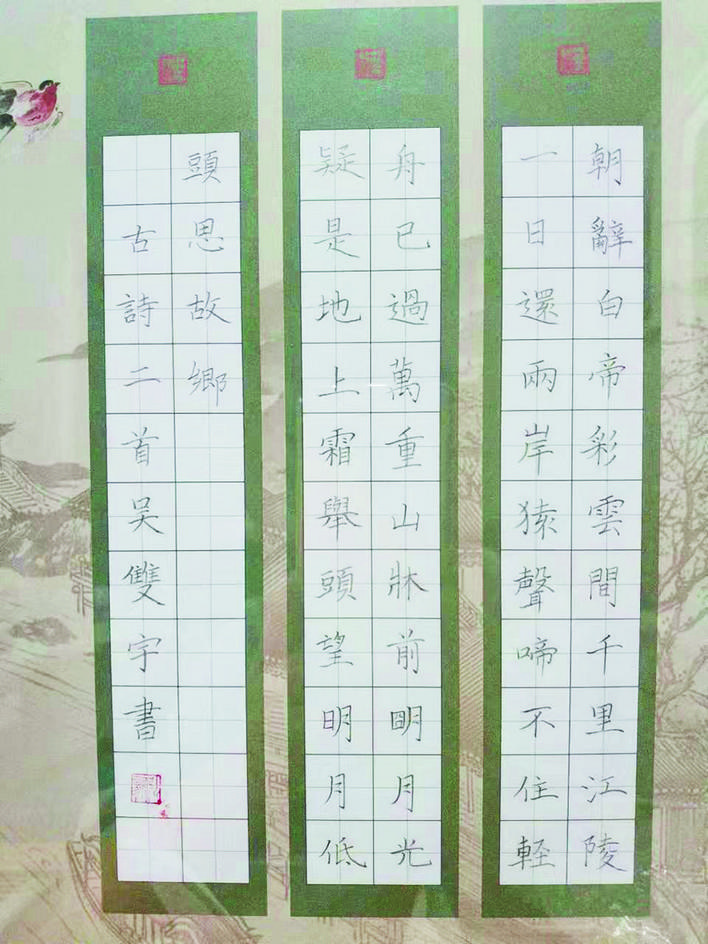 朝辭白帝彩雲間千里江陵
一日還兩岸猿聲啼不住輕
舟已過萬重山牀前明月光
疑是地上霜舉頭望明月低
頭思故鄉
古詩二首吳雙宇書